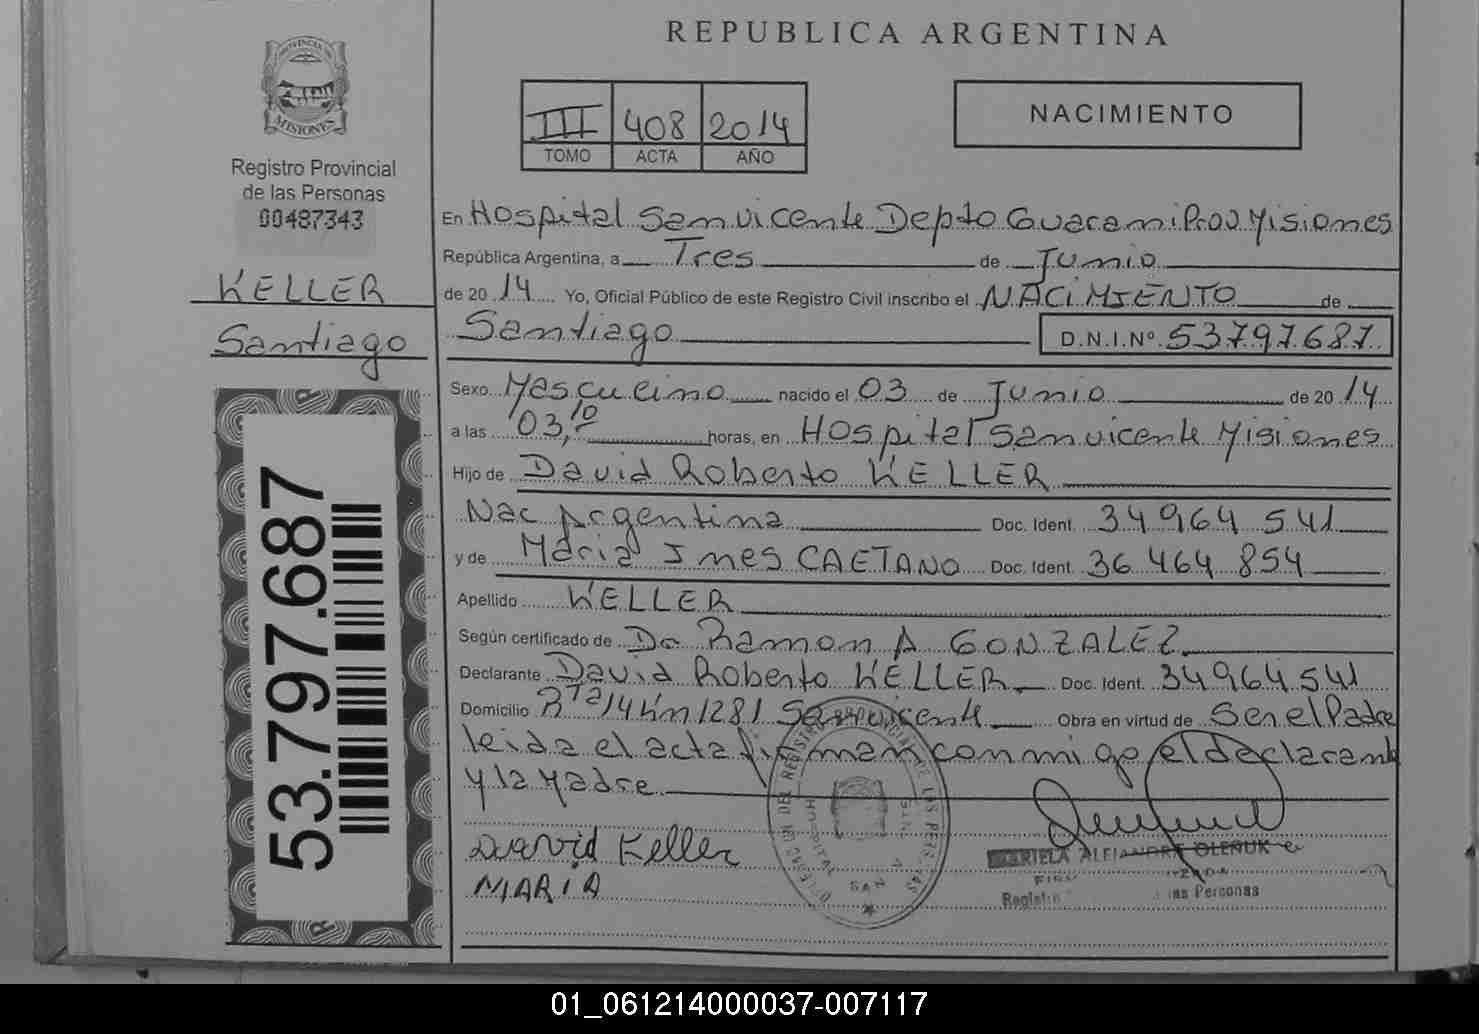 PROVINCIA DE
MISIONES
Registro Provincial
de las Personas
00487343
KELLER
Santiago
53.797.687
REPUBLICA ARGENTINA
III 408 2014
TOMO ACTA AÑO
NACIMIENTO
En Hospital San vicente Depto Guarani Prov Misiones
República Argentina, a Tres de Junio
de 20 14 Yo, Oficial Público de este Registro Civil inscribo el NACIMIENTO de
Santiago D.N.I.Nº 53.797.687
Sexo Masculino nacido el 03 de Junio de 20 14
a las 03,10 horas, en Hospital San vicente Misiones
Hijo de David Roberto KELLER
Nac Argentina Doc. Ident. 34 964 541
y de Maria Ines CAETANO Doc. Ident. 36 464 854
Apellido KELLER
Según certificado de Dr Ramon A GONZALEZ
Declarante David Roberto KELLER Doc. Ident. 34964541
Domicilio Rta 14 Km 1281 San vicente Obra en virtud de Ser el Padre
leida el acta firman conmigo el declarante
y la Madre
David Keller
MARIA
ALEJANDRA OLENUK
Registro las Personas
01_061214000037-007117